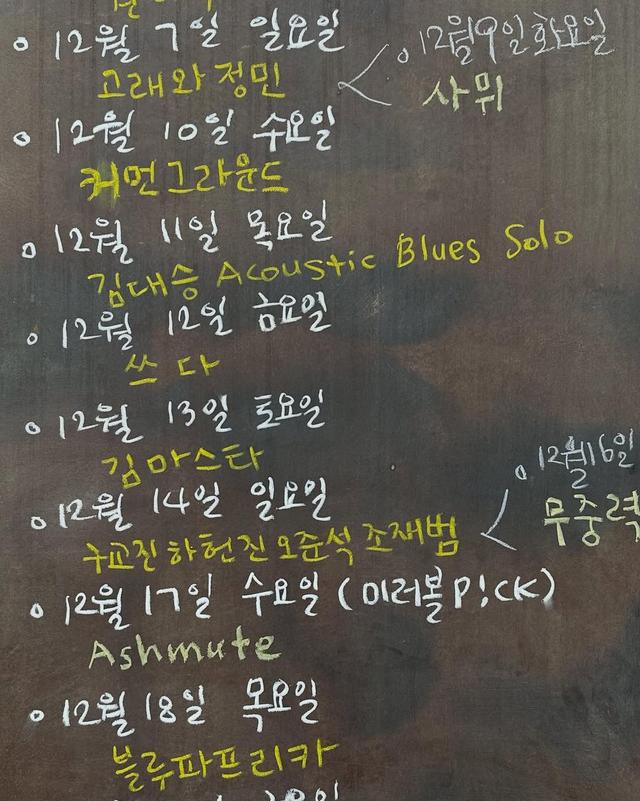 12월 7일 일요일
고래와 정민
12월 9일 화요일
사뮈
12월 10일 수요일
커먼그라운드
12월 11일 목요일
김대승 Acoustic Blues Solo
12월 12일 금요일
쓰다
12월 13일 토요일
김마스타
12월 14일 일요일
구교진 하헌진 오준석 조재범
12월 16일
무중력
12월 17일 수요일 (미러볼 P!CK)
Ashmute
12월 18일 목요일
블루파프리카